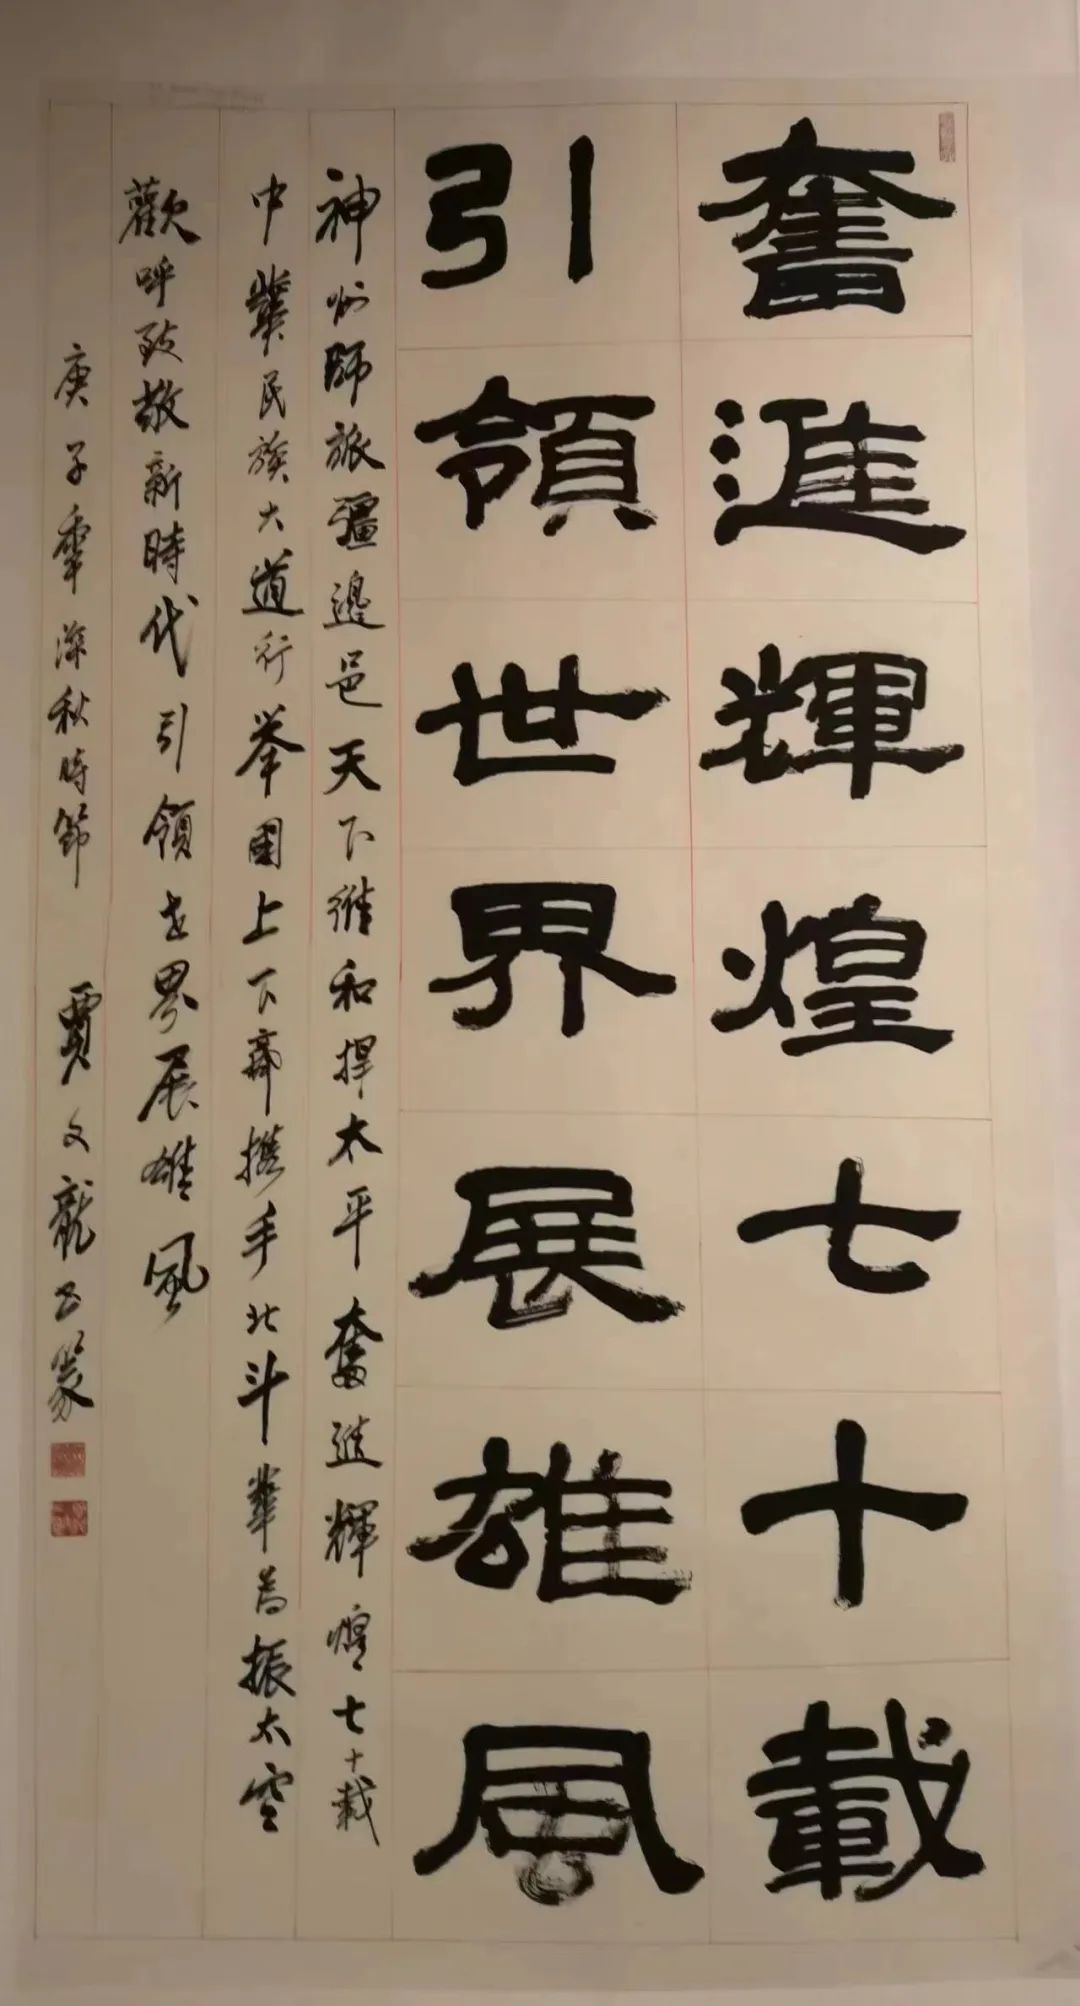 奮進輝煌七十載
引領世界展雄風
神州師旅疆邊邑天下維和捍太平奮進輝煌七十載
中華民族大道行举國上下齊攜手北斗華為振太空
歡呼致敬新時代引領世界展雄風
庚子季深秋時節 賈文龍書篆